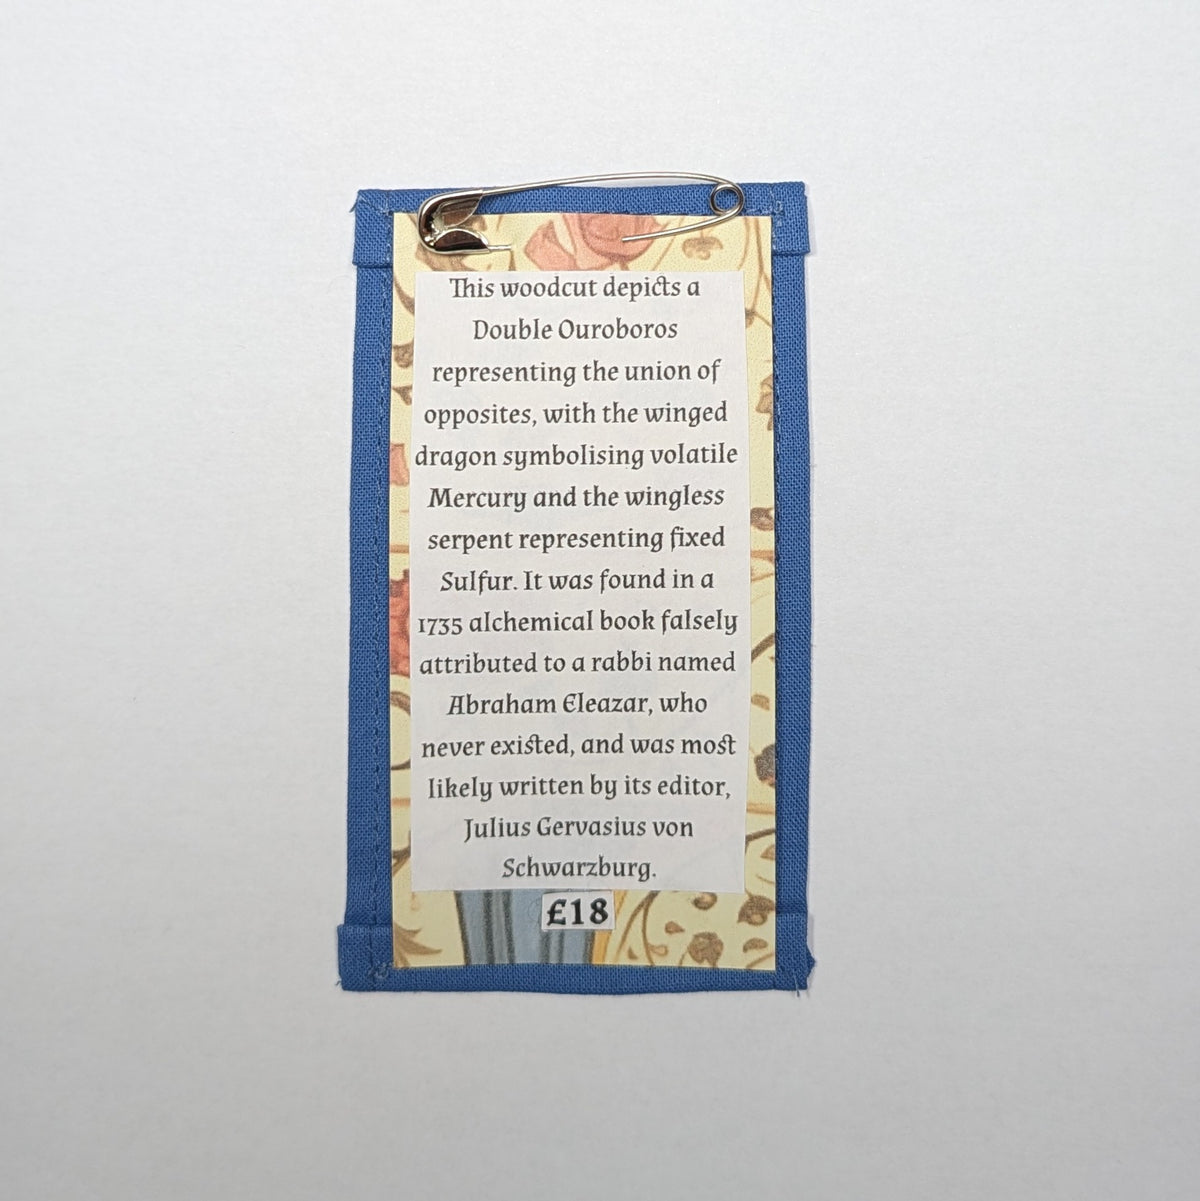 This woodcut depicts a
Double Ouroboros
representing the union of
opposites, with the winged
dragon symbolising volatile
Mercury and the wingless
serpent representing fixed
Sulfur. It was found in a
1735 alchemical book falsely
attributed to a rabbi named
Abraham Eleazar, who
never existed, and was most
likely written by its editor,
Julius Gervasius von
Schwarzburg.
£18